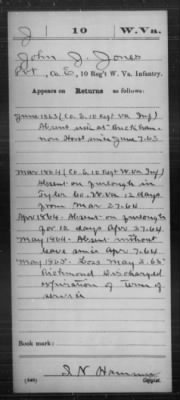 J 10 W.Va.
John J. Jones
Pvt., Co. E, 10 Reg't W. Va. Infantry.
Appears on Returns as follows:
June 1863 (Co. E, 10 Regt Va Inf)
Absent sick at Buckhan-
non Hosp since June 7.63
Mar 1864 (Co. E, 10 Regt W.Va Inf)
Absent on furlough in
Tyler Co. W.Va 12 days
from Mar 27.64
Apr 1864. Absent on furlough
for 12 days Apr 27.64.
May 1864. Absent without
leave since Apr 7.64.
May 1865. Loss May 2.65
Richmond Discharged
expiration of Term of
service
Book mark:
(546)
Copyist.